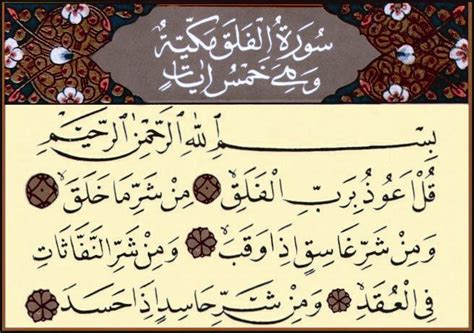 سُورَةُ الْفَلَقِ مَكِّيَّةٌ
وَهِيَ خَمْسُ اٰيَاتٍ
بِسْمِ اللهِ الرَّحْمٰنِ الرَّحِيْمِ
قُلْ اَعُوْذُ بِرَبِّ الْفَلَقِۙ مِنْ شَرِّ مَا خَلَقَۙ
وَمِنْ شَرِّ غَاسِقٍ اِذَا وَقَبَۙ وَمِنْ شَرِّ النَّفَّاثَاتِ
فِى الْعُقَدِۙ وَمِنْ شَرِّ حَاسِدٍ اِذَا حَسَدَ